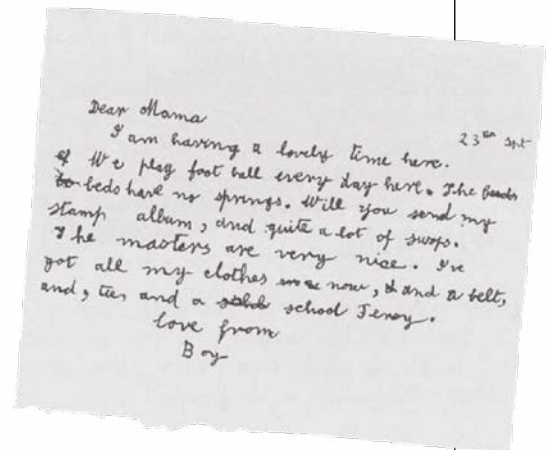 Dear Mama
23rd Sept
I am having a lovely time here.
We play foot ball every day here. The beds
beds have no springs. Will you send my
stamp album, and quite a lot of swops.
The masters are very nice. I've
got all my clothes now, and a belt,
and, tie, and a school Jersy.
love from
Boy